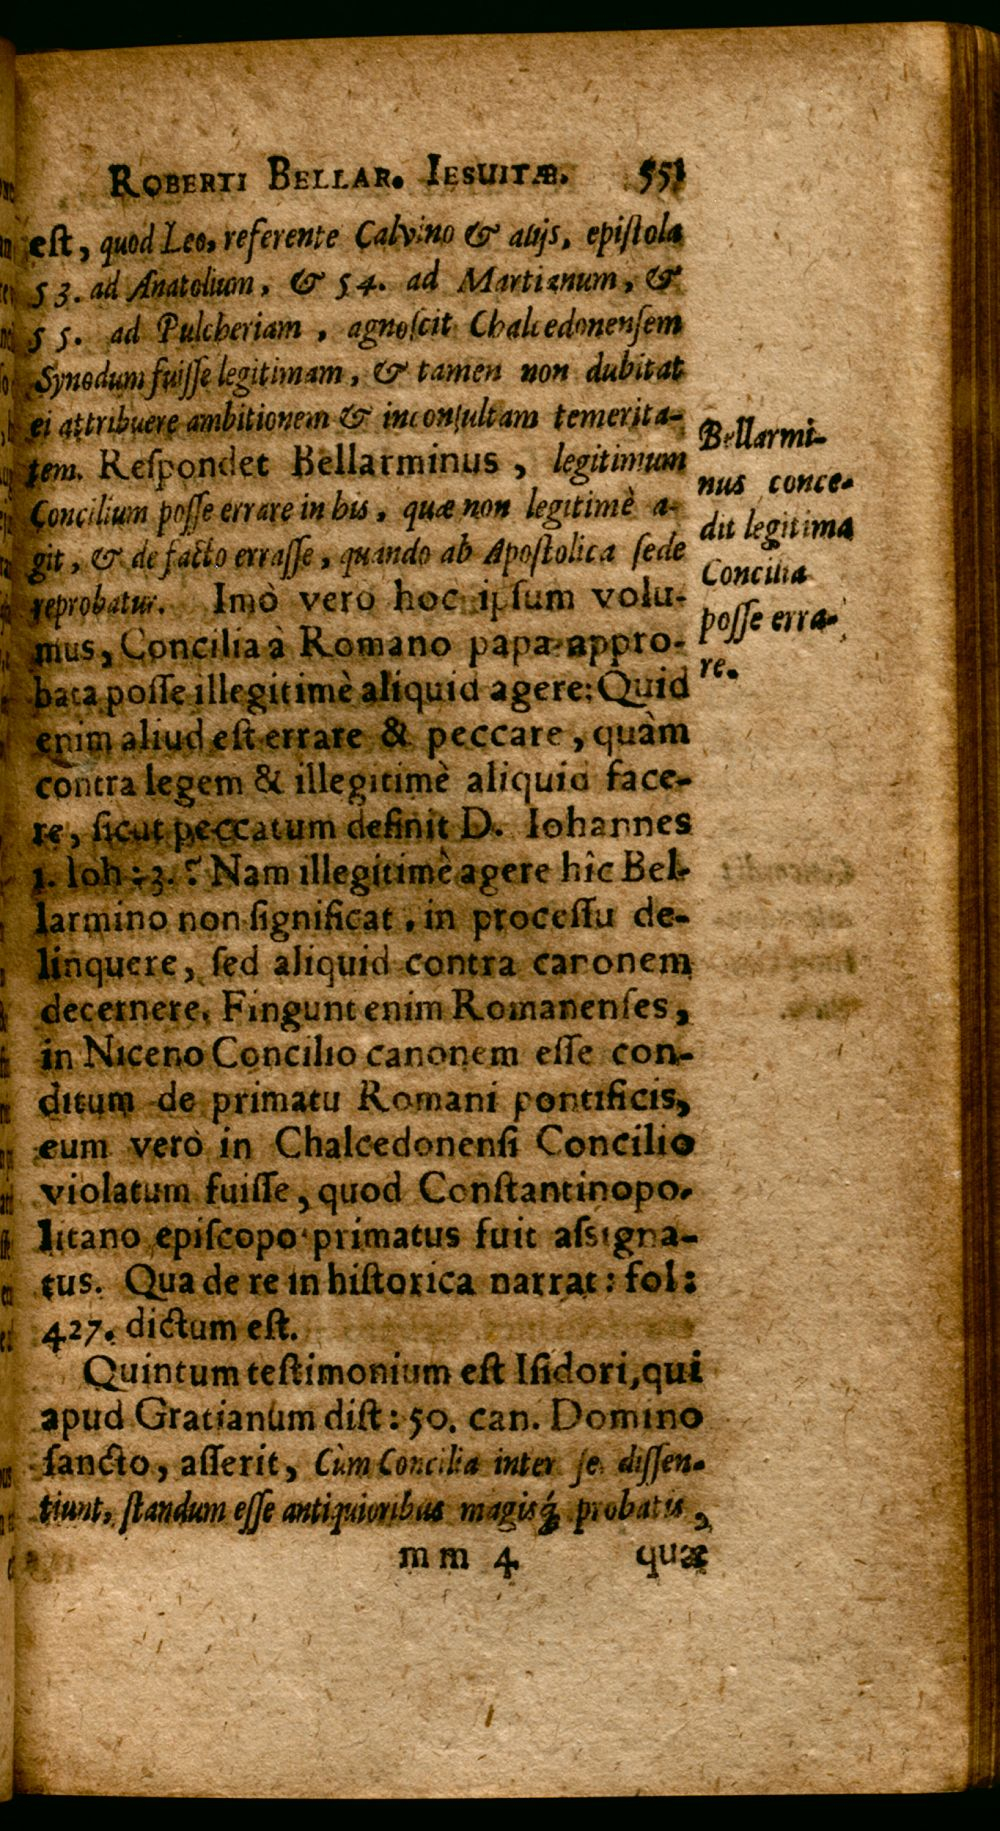 ROBERTI BELLAR. IESUITÆ. 551
est, quod Leo, referente Calvino & alijs, epistola
53. ad Anatolium, & 54. ad Martianum, &
55. ad Pulcheriam, agnoscit Chalcedonensem
Synodum fuisse legitimam, & tamen non dubitat
ei attribuere ambitionem & inconsultam temerita-
tem. Respondet Bellarminus, legitimum
Concilium posse errare in his, quæ non legitimè a-
git, & de facto errasse, quando ab Apostolica sede
reprobatur. Imò vero hoc ipsum volu-
mus, Concilia à Romano papa appro-
bata posse illegitimè aliquid agere: Quid
enim aliud est errare & peccare, quàm
contra legem & illegitimè aliquid face-
re, sicut peccatum definit D. Iohannes
1. Ioh: 3.? Nam illegitimè agere hîc Bel-
larmino non significat, in processu de-
linquere, sed aliquid contra canonem
decernere. Fingunt enim Romanenses,
in Niceno Concilio canonem esse con-
ditum de primatu Romani pontificis,
eum verò in Chalcedonensi Concilio
violatum fuisse, quod Constantinopo-
litano episcopo primatus fuit assigna-
tus. Qua de re in historica narrat: fol:
427. dictum est.
Quintum testimonium est Isidori, qui
apud Gratianum dist: 50. can. Domino
sancto, asserit, Cùm Concilia inter se dissen-
tiunt, standum esse antiquioribus magisq́; probatis,
mm 4 quæ
Bellarmi-
nus conce-
dit legitima
Concilia
posse erra-
re.